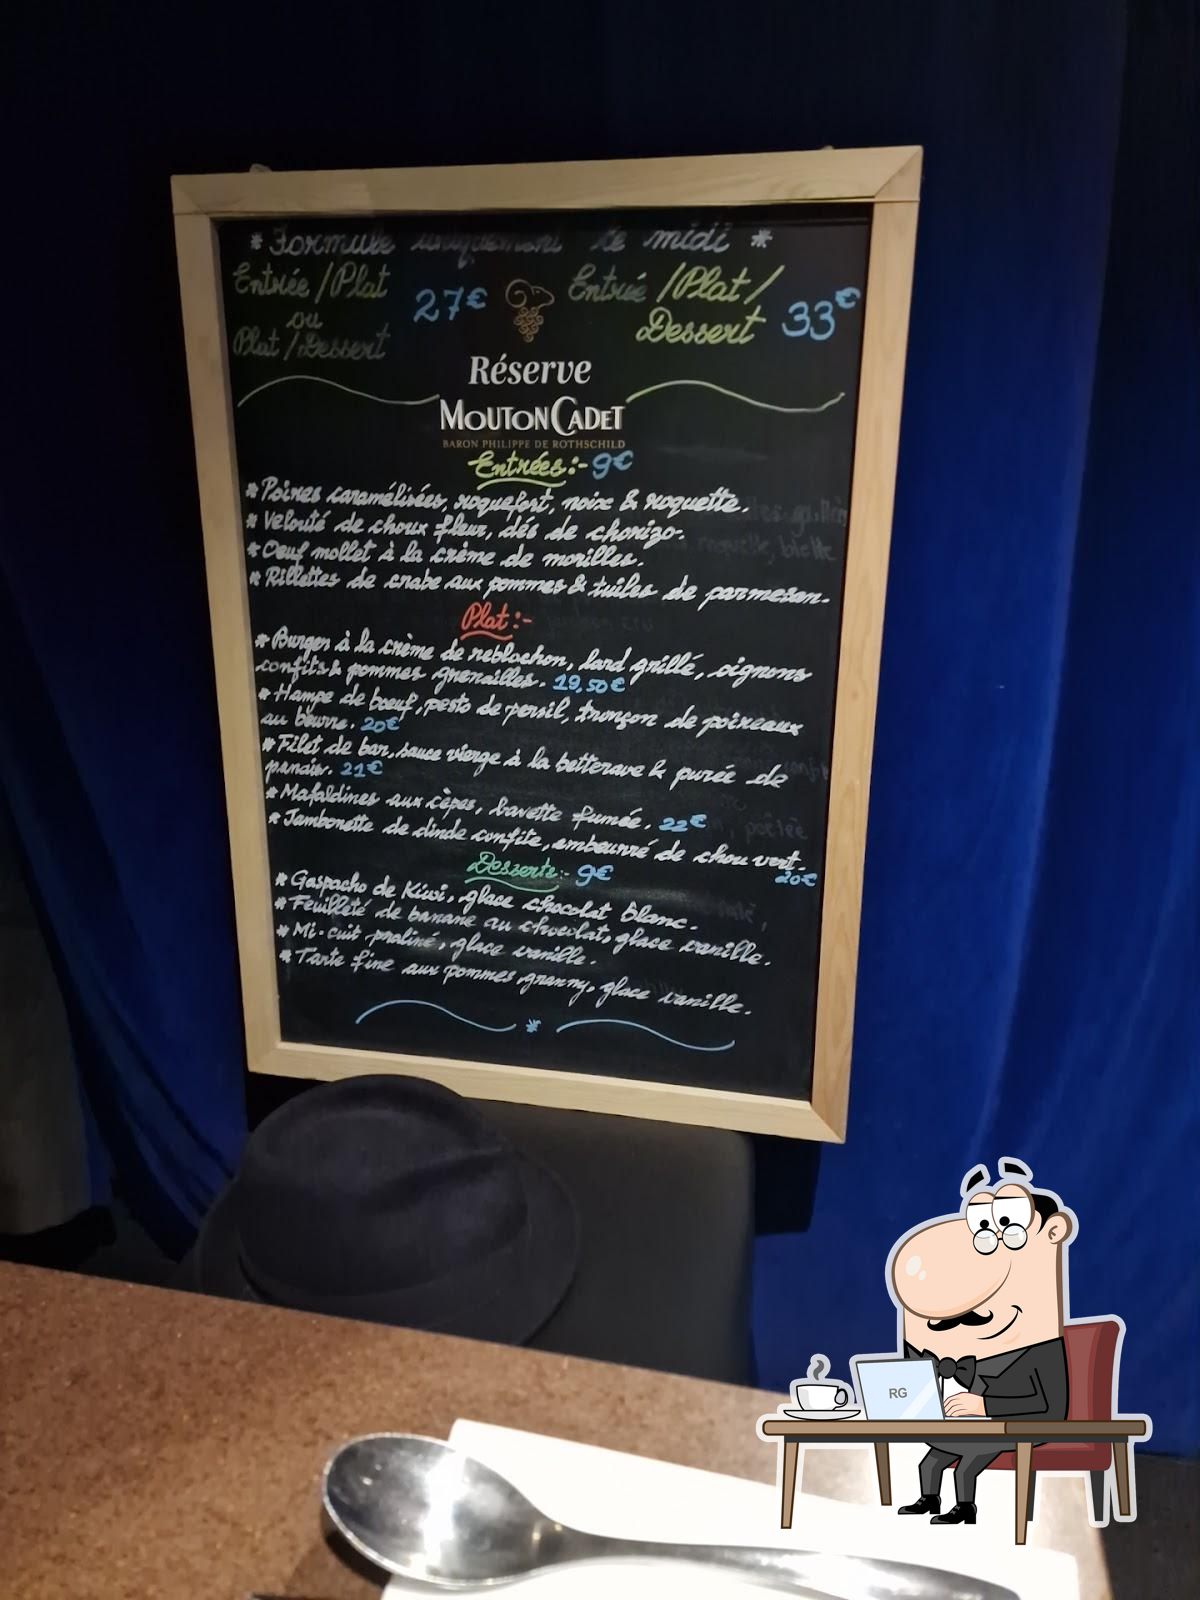 * Formule uniquement le midi *
Entrée / Plat 27€
ou
Plat / Dessert
Entrée / Plat /
Dessert 33€
Réserve
MOUTON CADET
BARON PHILIPPE DE ROTHSCHILD
Entrées:- 9€
* Poires caramélisées, roquefort, noix & roquette.
* Velouté de choux fleur, dés de chorizo.
* Oeuf mollet à la crème de morilles.
* Rillettes de crabe aux pommes & tuiles de parmesan.
Plat:-
* Burger à la crème de reblochon, lard grillé, oignons
confits & pommes grenailles. 19,50€
* Hampe de boeuf, pesto de persil, tronçon de poireaux
au beurre. 20€
* Filet de bar, sauce vierge à la betterave & purée de
panais. 21€
* Mafaldines aux cèpes, bavette fumée. 22€
* Jambonette de dinde confite, embeurré de chou vert.
20€
Desserts:- 9€
* Gaspacho de Kiwi, glace chocolat blanc.
* Feuilleté de banane au chocolat, glace vanille.
* Mi-cuit praliné, glace vanille.
* Tarte fine aux pommes granny, glace vanille.
*
RG